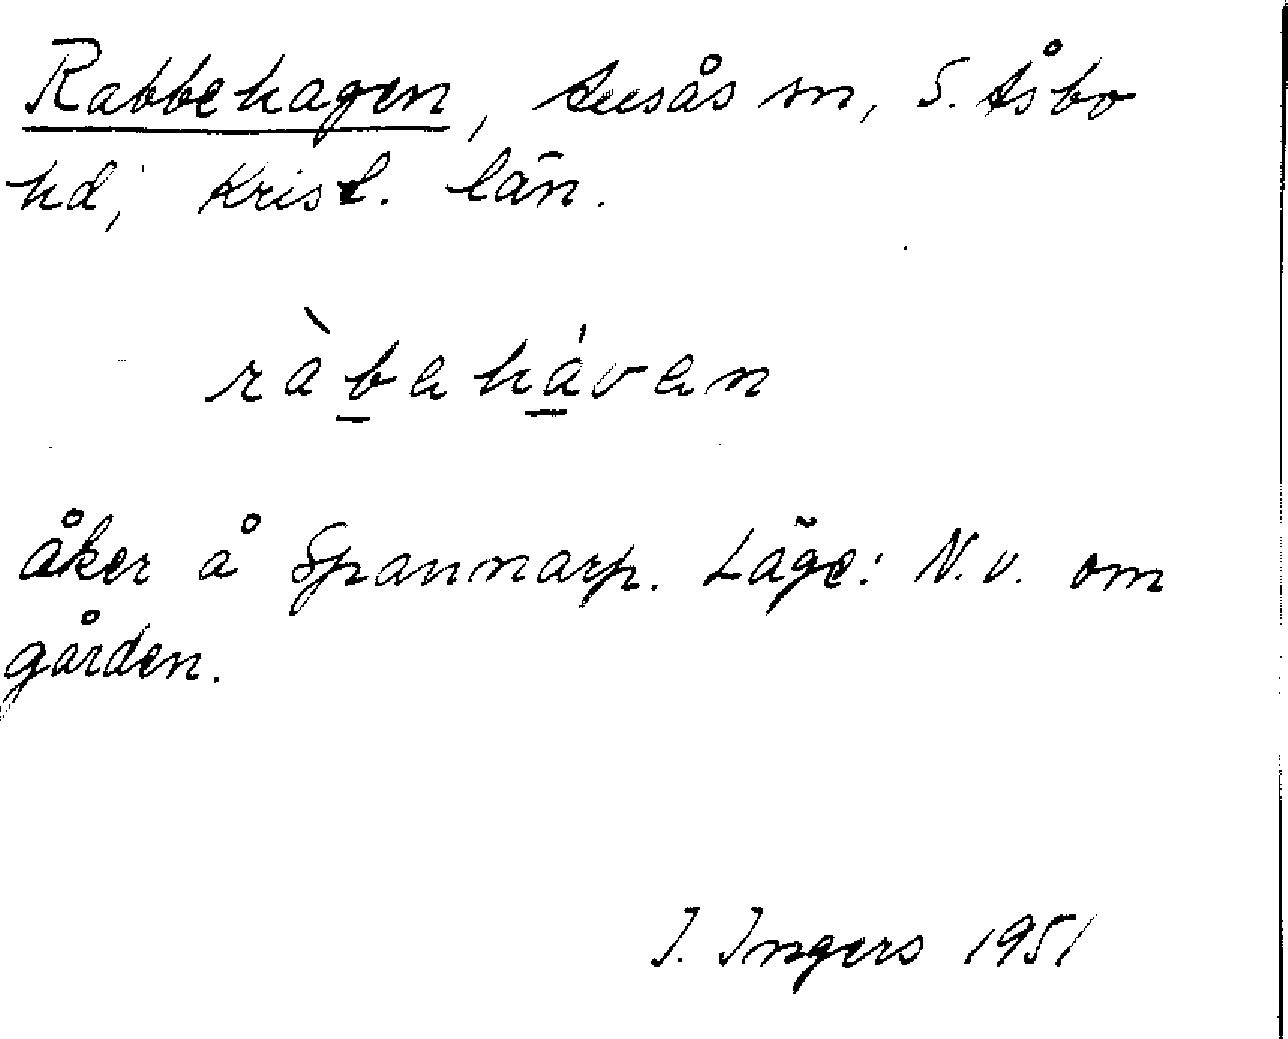 Rabbehagen, Ausås sn, S. Åsbo
hd, Krist. län.
ràbahávan
åker å Spannarp. Läge: N.v. om
gården.
I. Ingers 1951